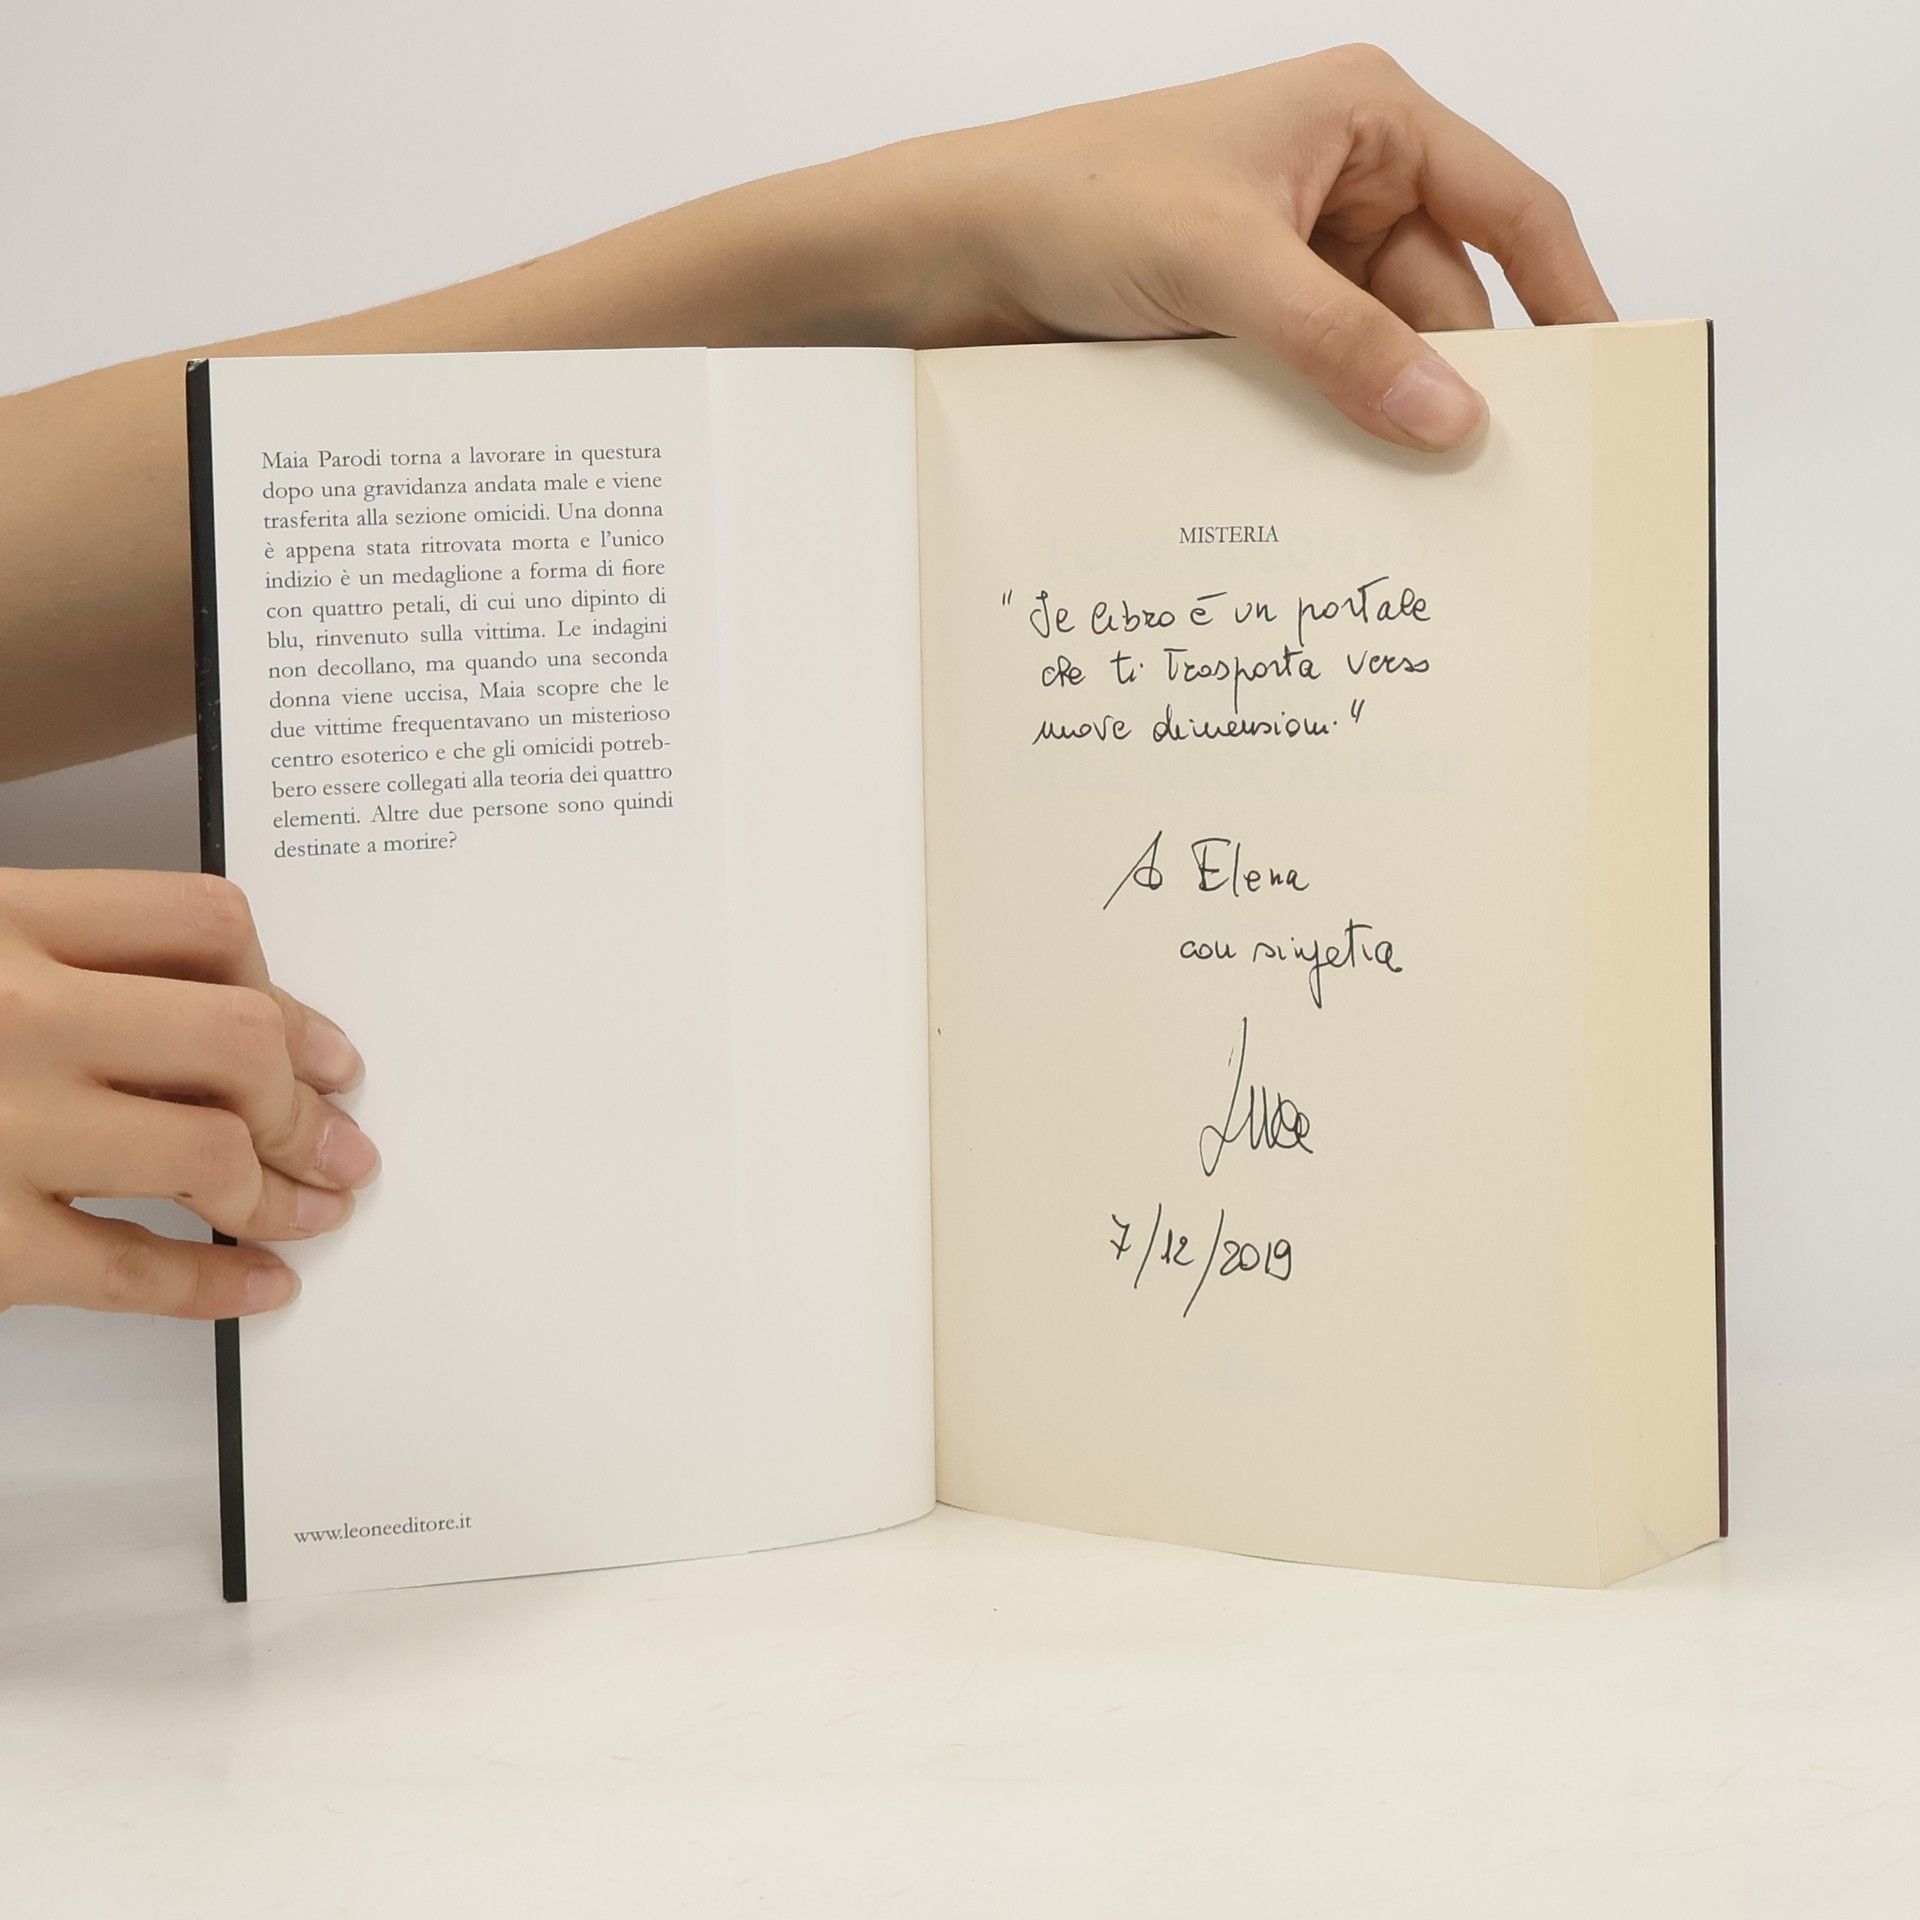 Maia Parodi torna a lavorare in questura
dopo una gravidanza andata male e viene
trasferita alla sezione omicidi. Una donna
è appena stata ritrovata morta e l'unico
indizio è un medaglione a forma di fiore
con quattro petali, di cui uno dipinto di
blu, rinvenuto sulla vittima. Le indagini
non decollano, ma quando una seconda
donna viene uccisa, Maia scopre che le
due vittime frequentavano un misterioso
centro esoterico e che gli omicidi potreb-
bero essere collegati alla teoria dei quattro
elementi. Altre due persone sono quindi
destinate a morire?
www.leoneeditore.it
MISTERIA
"Il libro è un portale
che ti trasporta verso
nuove dimensioni."
A Elena
con simpatia
7/12/2019